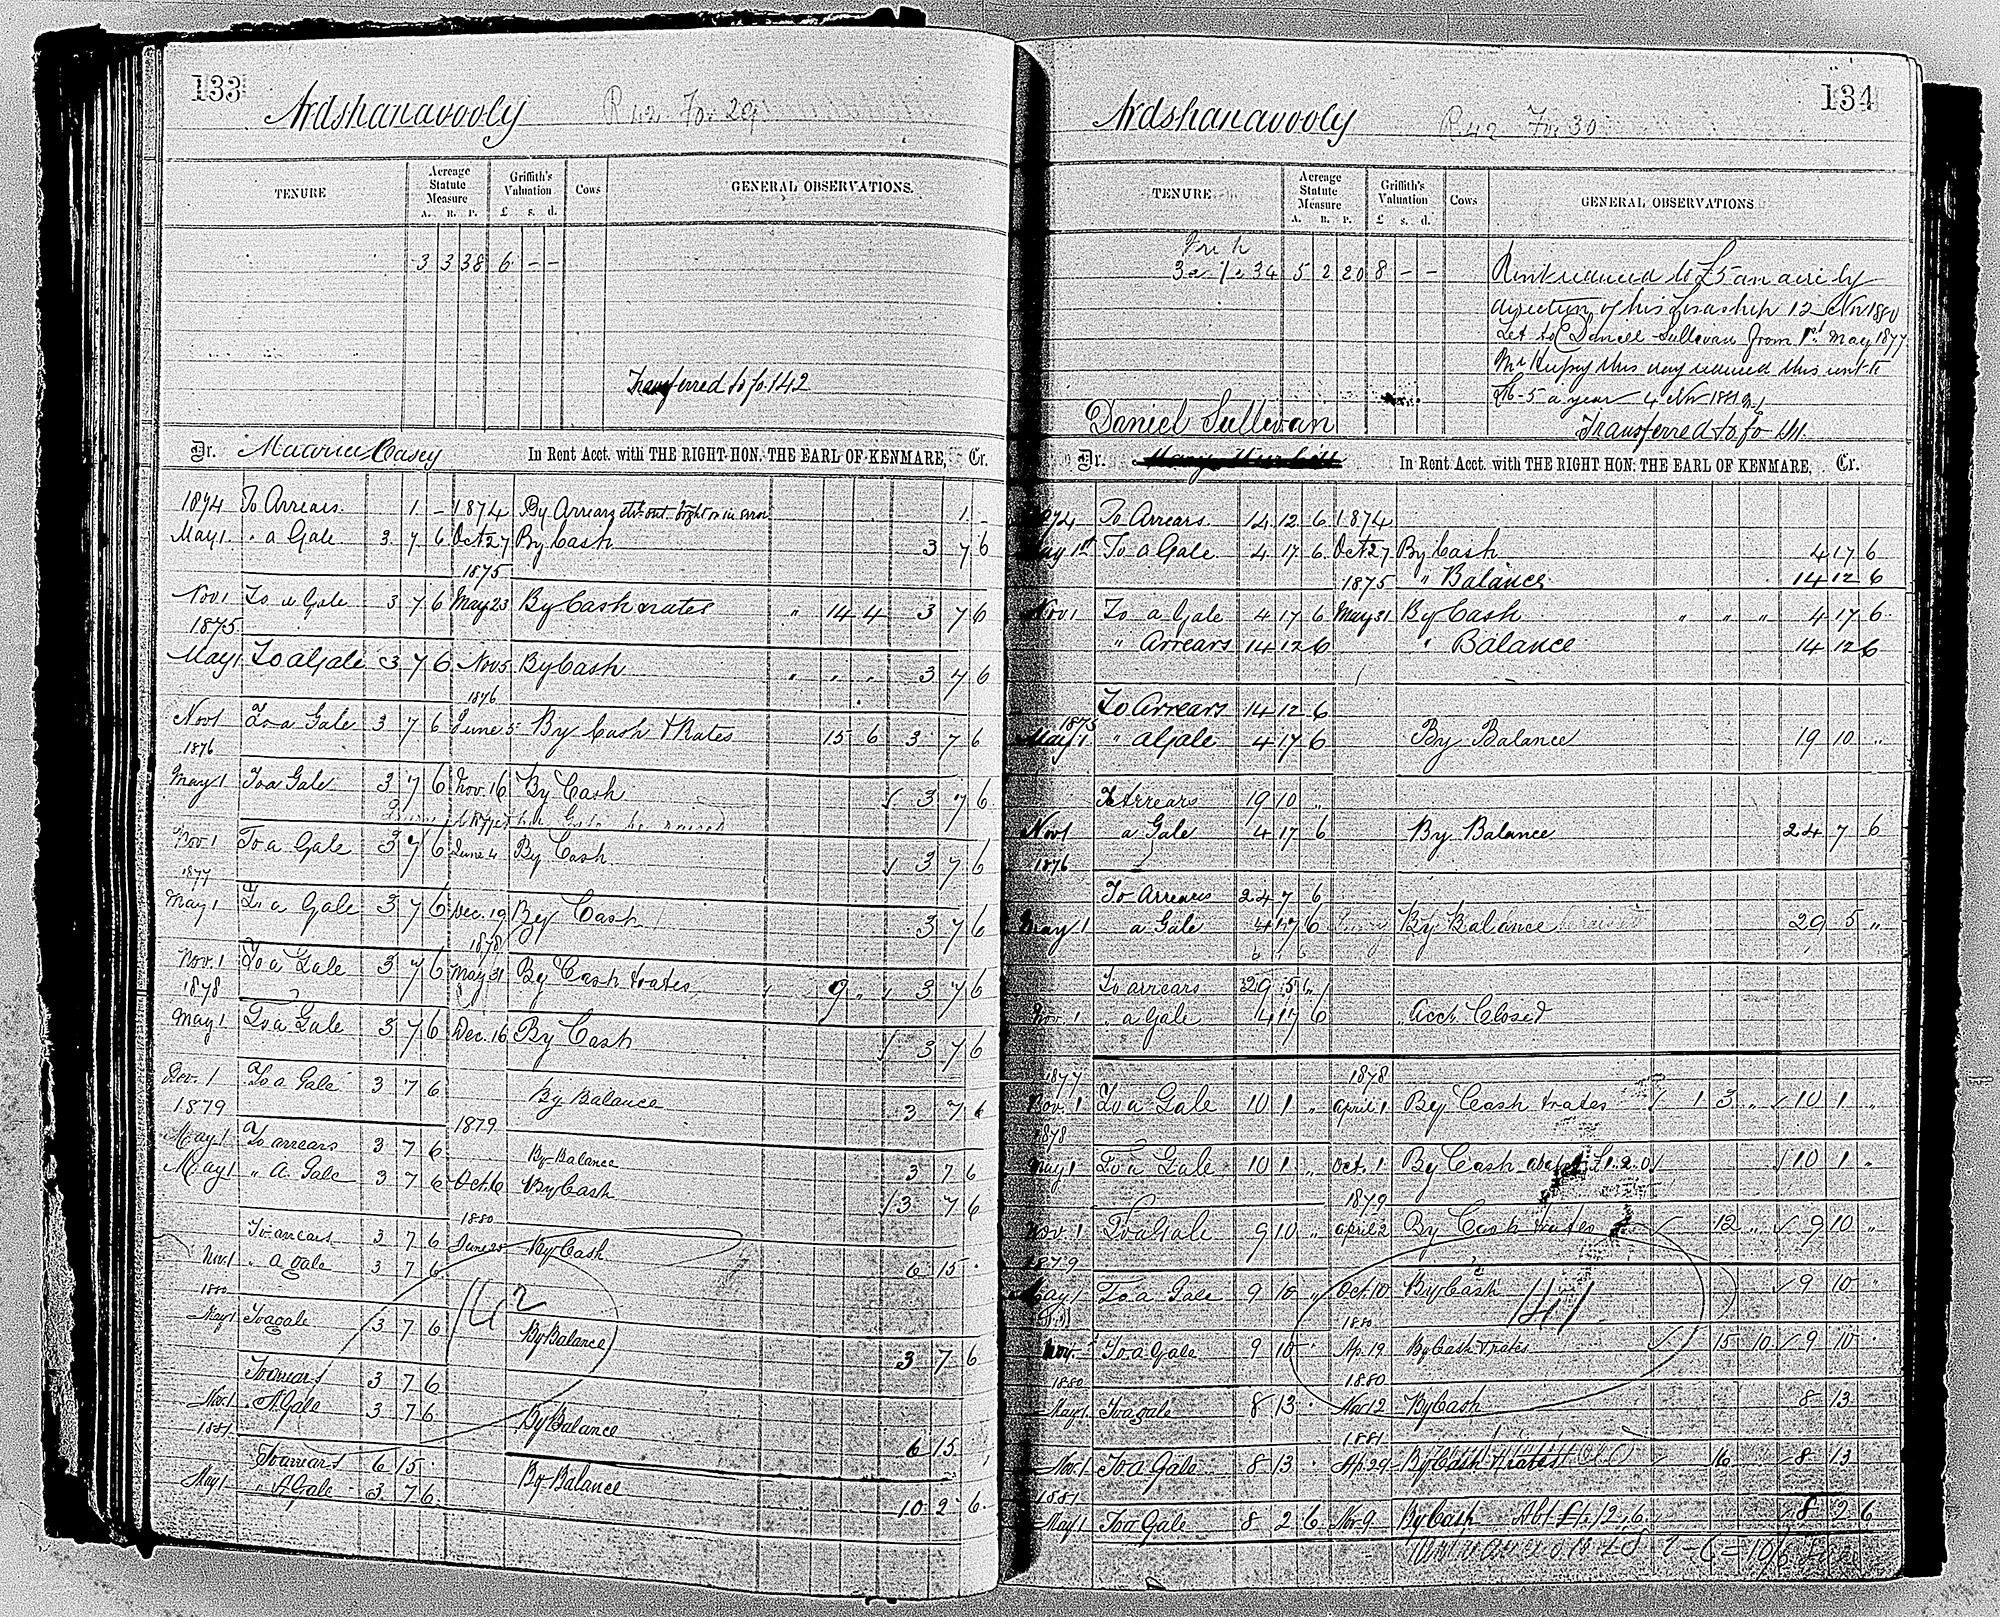 133
Ardshanavooly R 42 Fo 29
TENURE Acreage Statute Measure A. R. P. Griffith's Valuation £ s. d. Cows GENERAL OBSERVATIONS.
3 3 38 6 - -
Transferred to fo 142
Dr. Maurice Casey In Rent Acct. with THE RIGHT HON: THE EARL OF KENMARE, Cr.
1874 To Arrears 1 - 1874 By Arrears in error 1 -
May 1 " a Gale 3 7 6 Oct 27 By Cash 3 7 6
1875
Nov 1 To a Gale 3 7 6 May 23 By Cash & rates " 14 4 3 7 6
1875
May 1 To a Gale 3 7 6 Nov 5 By Cash " " " 3 7 6
1876
Nov 1 To a Gale 3 7 6 June 5 By Cash & Rates 15 6 3 7 6
1876
May 1 To a Gale 3 7 6 Nov. 16 By Cash 3 7 6
1877
Nov 1 To a Gale 3 7 6 June 4 By Cash 3 7 6
1877
May 1 To a Gale 3 7 6 Dec. 19 By Cash 3 7 6
1878
Nov. 1 To a Gale 3 7 6 May 31 By Cash & rates 9 " 3 7 6
1878
May 1 To a Gale 3 7 6 Dec. 16 By Cash 3 7 6
Nov. 1 To a Gale 3 7 6 By Balance 3 7 6
1879 1879
May 1 To arrears 3 7 6 By Balance 3 7 6
May 1 " A Gale 3 7 6 Oct. 6 By Cash 3 7 6
1880
To arrears 3 7 6 June 25 By Cash 6 15
Nov. 1 " a gale 3 7 6
142
1880
May 1 To a gale 3 7 6 By Balance 3 7 6
To arrears 3 7 6
Nov. 1 " A Gale 3 7 6 By Balance 6 15
1881
To arrears 6 15
May 1 " A Gale 3 7 6 By Balance 10 2 6
134
Ardshanavooly R 42 Fo 30
TENURE Acreage Statute Measure A. R. P. Griffith's Valuation £ s. d. Cows GENERAL OBSERVATIONS
Irish
3a 1r 34 5 2 20 8 - -
Rent reduced to £5 an acre by
direction of his Lordship 12 Nov 1880
Let to Daniel Sullivan from 1st May 1877
Mr Hussey this day reduced this rent to
£16-5 a year 4 Nov 1881
Daniel Sullivan
Transferred to fo 141
Dr. In Rent Acct. with THE RIGHT HON: THE EARL OF KENMARE, Cr.
1874 To Arrears 14 12 6 1874
May 1st To a Gale 4 17 6 Oct 27 By Cash 4 17 6
1875 " Balance 14 12 6
Nov 1 To a Gale 4 17 6 May 31 By Cash " " " 4 17 6
" Arrears 14 12 6 " Balance 14 12 6
To Arrears 14 12 6
1875
May 1 " a Gale 4 17 6 By Balance 19 10 "
To Arrears 19 10 "
Nov 1 a Gale 4 17 6 By Balance 24 7 6
1876
To Arrears 24 7 6
May 1 a Gale 4 17 6 By Balance 29 5 "
To arrears 29 5 "
Nov. 1 " a Gale 4 17 6 Acct. Closed
1877 1878
Nov. 1 To a Gale 10 1 " April 1 By Cash & rates 1 3 " 10 1 "
1878
May 1 To a Gale 10 1 " Oct. 1 By Cash £1.2.0 10 1 "
1879
Nov. 1 To a Gale 9 10 " April 2 By Cash & rates 12 " 9 10 "
1879
May 1 To a Gale 9 10 " Oct. 10 By Cash 9 10 "
141
1880
Nov. To a Gale 9 10 " Ap. 19 By Cash & rates 15 10 9 10
1880 1880
May 1 To a gale 8 13 " Nov 12 By Cash 8 13
1881
Nov. 1 To a Gale 8 13 " Ap. 29 By Cash & rates 16 8 13
1881
May 1 To a Gale 8 2 6 Nov 9 By Cash Abt £1.12.6 8 2 6